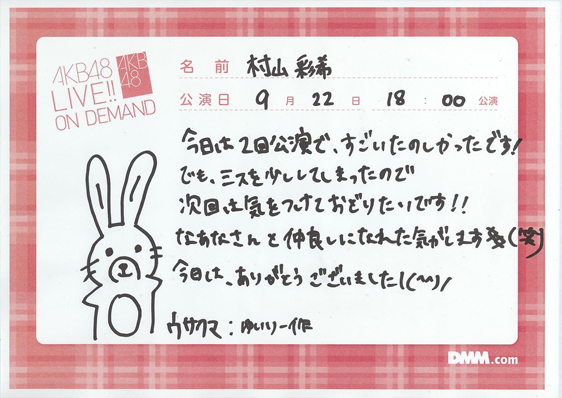 AKB48
LIVE!!
ON DEMAND
AKB
48
名 前 村山 彩希
公演日 9 月 22 日 18 : 00 公演
今日は2回公演で、すごいたのしかったです!
でも、ミスを少ししてしまったので
次回は気をつけておどりたいです!!
なぁなさんと仲良しになれた気がします(笑)
今日は、ありがとうございました!(^^)/
ウサクマ:ゆいりー作
DMM.com